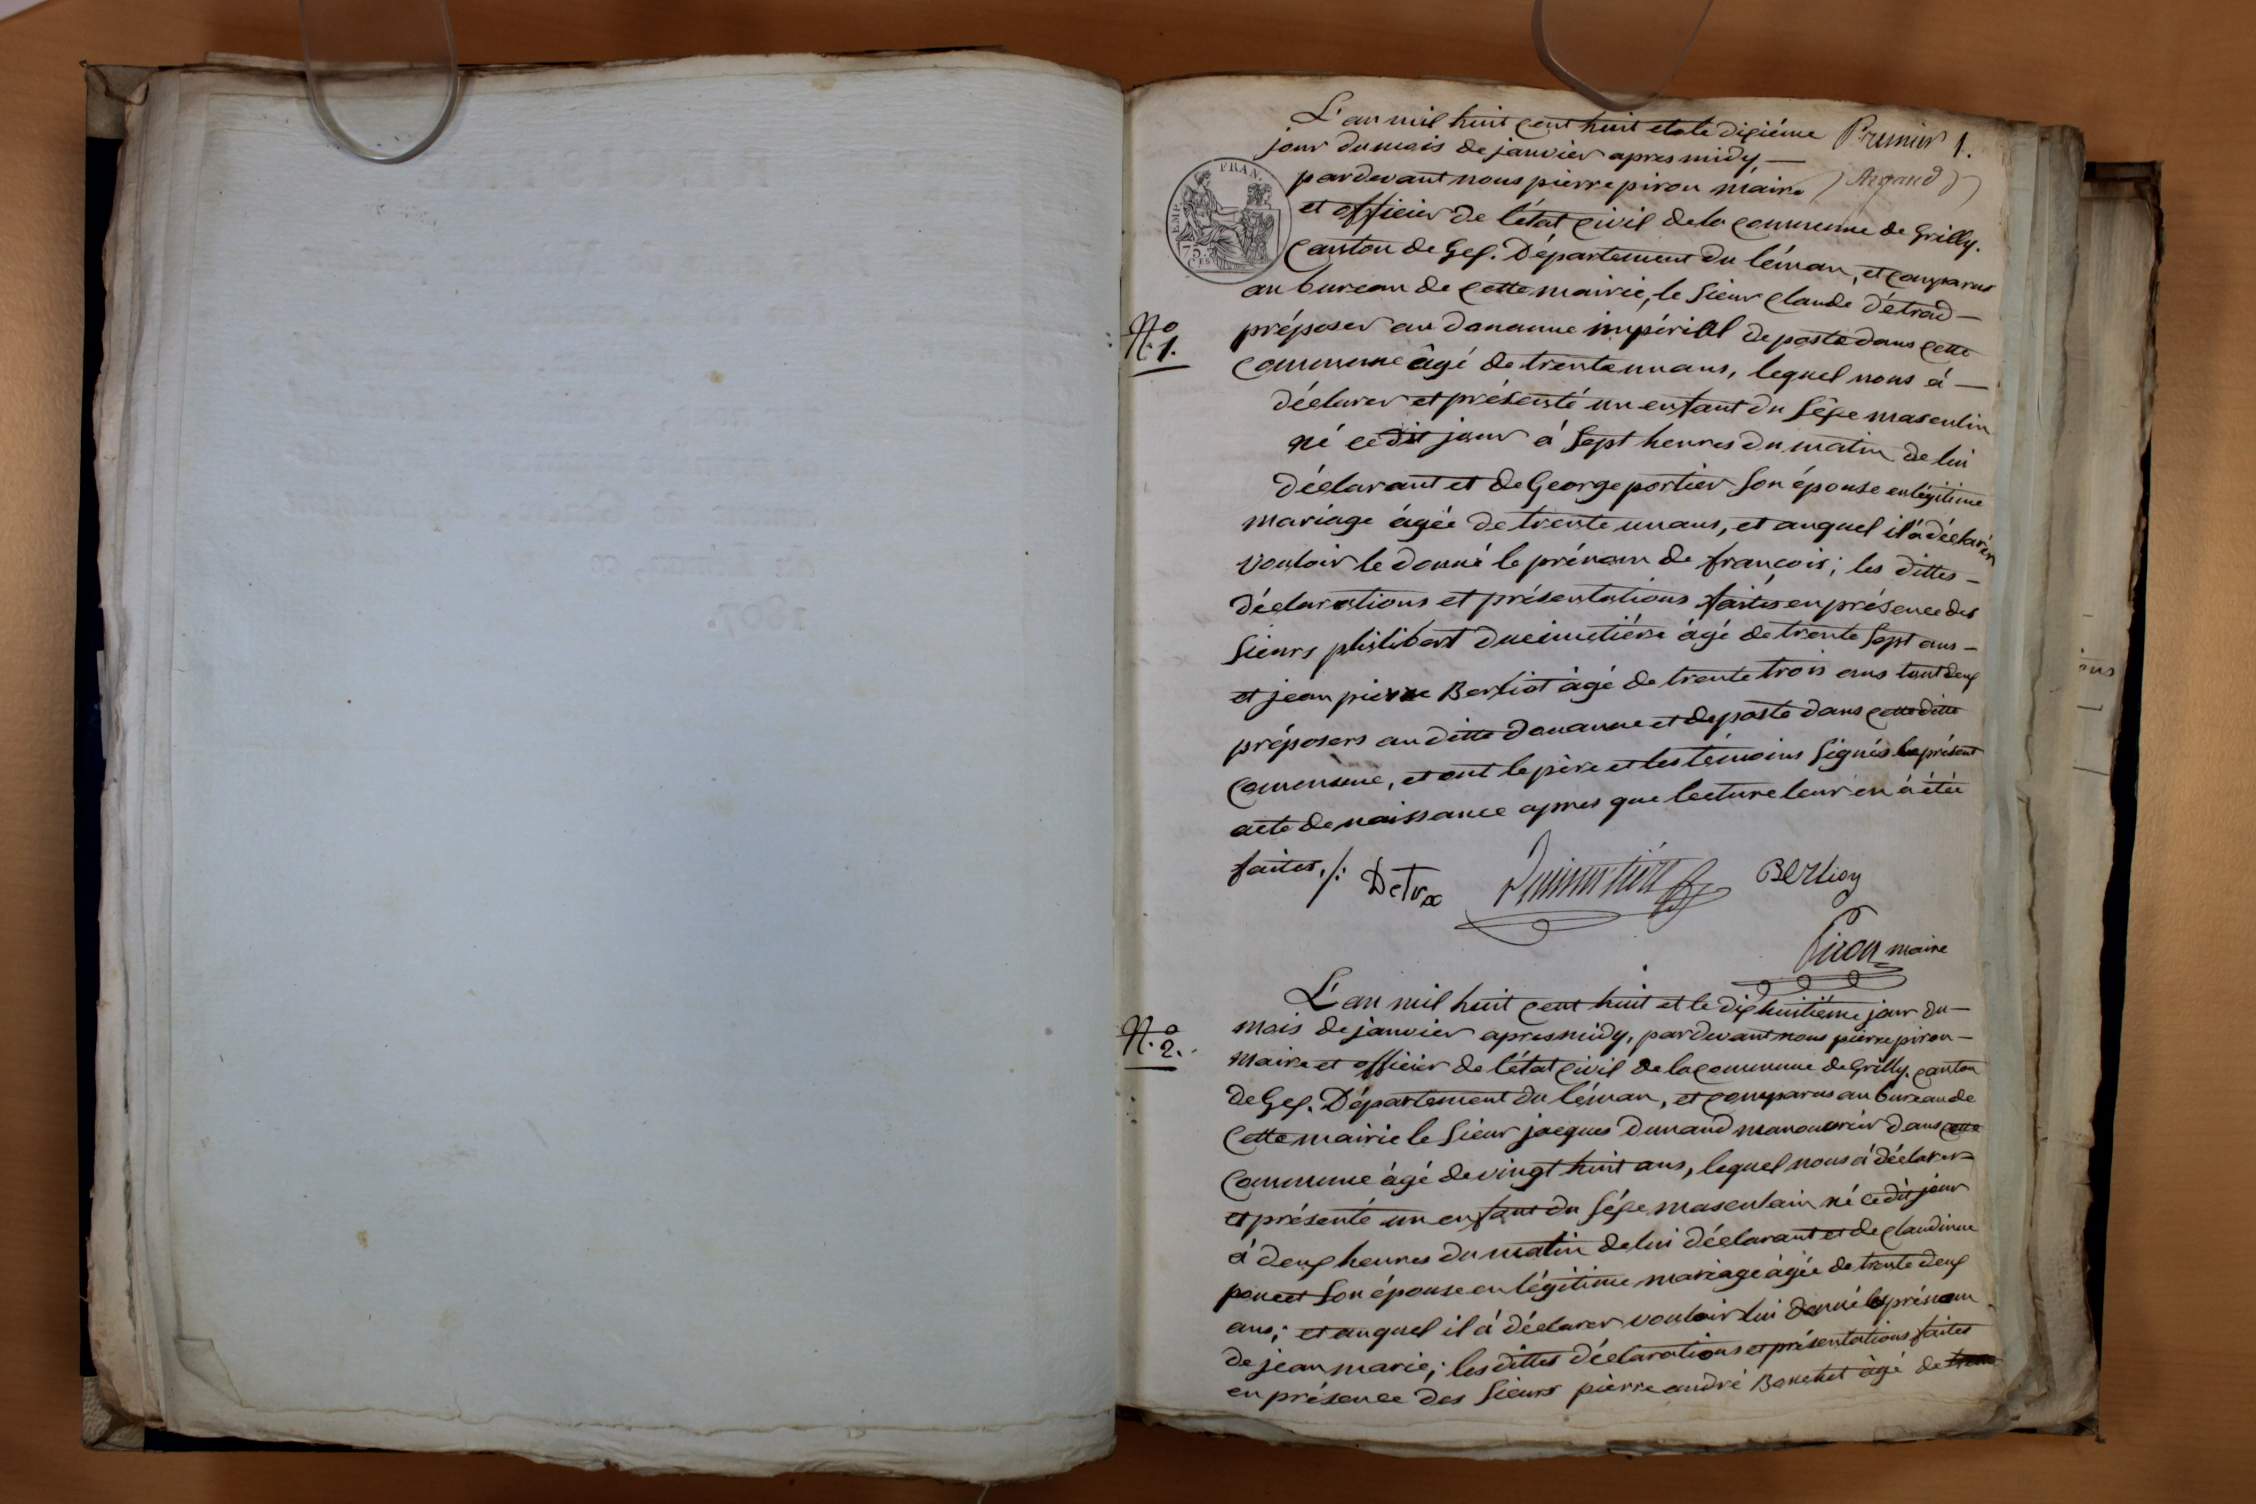 L'an mil huit cent huit et le dixiéme Premier 1.
jour du mois de janvier apres midy —
pardevant nous pierre piron maire
et officier de l'état civil de la commune de Grilly.
canton de Gex. Département du léman, et comparus
au bureau de cette mairie, le sieur claude détrad —
N.o 1.
préposer au douanne impérial de poste dans cette
commune âgé de trente un ans, lequel nous á —
déclarer et présenté un enfant du séxe masculin
né cedit jour á sept heures du matin de lui
déclarant et de George portier son épouse en légitime
mariage âgée de trente un ans, et auquel il á déclarer
vouloir le donné le prénom de françois; les dittes —
déclarations et présentations faites en présence des
sieurs philibert ducimetiére âgé de trente sept ans —
et jean pierre Berliot âgé de trente trois ans tout deux
préposers au ditte douanne et de poste dans cette ditte
commune, et ont le pére et les témoins signés le présent
acte de naissance apres que lecture leur en á étée
faites./.
Detra Ducimetiére Berlioz
Piron maire
L'an mil huit cent huit et le dix huitiéme jour du —
N.o 2.
mois de janvier apres midy, pardevant nous pierre piron —
maire et officier de l'état civil de la commune de Grilly. canton
de Gex. Département du léman, et comparus au bureau de
cette mairie le sieur jacques dunand manouvrier dans cette
commune âgé de vingt huit ans, lequel nous á déclarer
et présenté un enfant du séxe masculain né cedit jour
á deux heures du matin de lui déclarant et de claudinne
poncet son épouse en légitime mariage âgée de trente deux
ans; et auquel il á déclarer vouloir lui donné les prénom
de jean marie; les dittes déclarations et présentations faites
en présence des sieurs pierre andré Bouchet âgé de
FRAN.
EMP.
75
CES
1807.